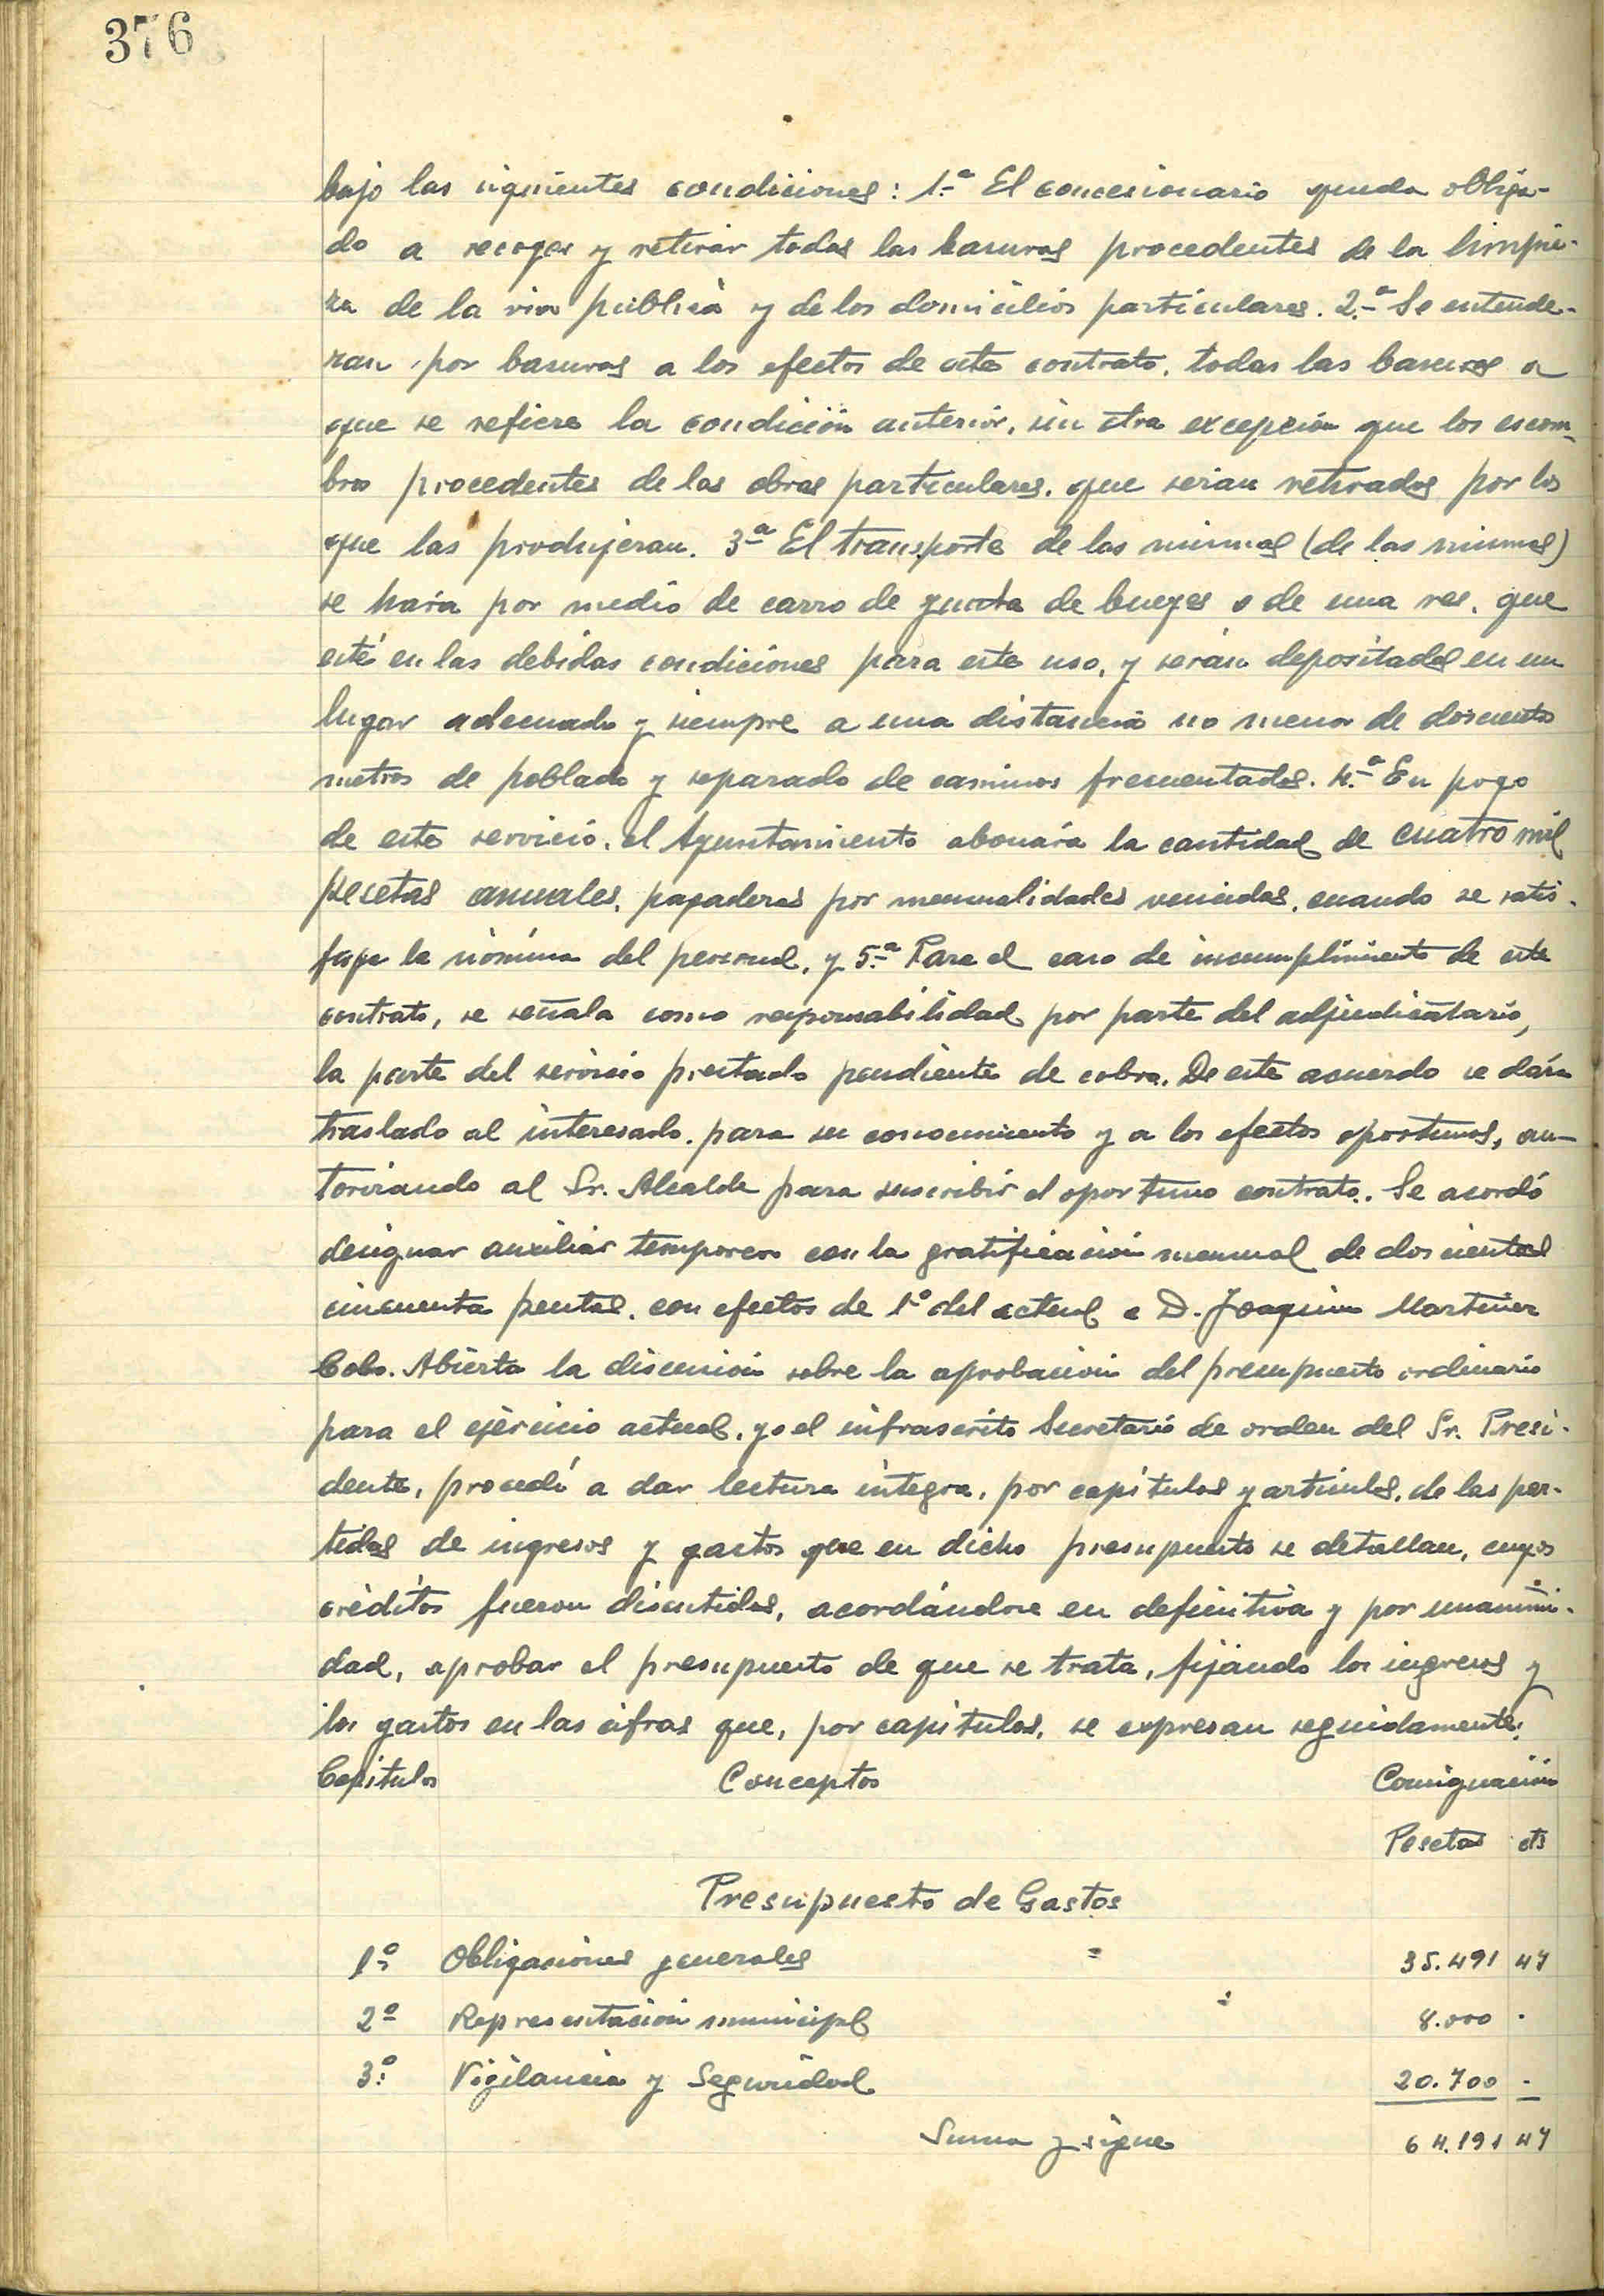 376
bajo las siguientes condiciones: 1.ª El concesionario queda obliga-
do a recoger y retirar todas las basuras procedentes de la limpie-
za de la via publica y de los domicilios particulares. 2.ª Se entende-
ran por basuras a los efectos de este contrato, todas las basuras a
que se refiere la condición anterior, sin otra excepción que los escom-
bros procedentes de las obras particulares, que serian retirados por los
que las produjeran. 3ª El transporte de las mismas (de las mismas)
se hará por medio de carro de yunta de bueyes o de una res, que
esté en las debidas condiciones para este uso, y serán depositadas en un
lugar adecuado y siempre a una distancia no menor de doscientos
metros de poblado y separado de caminos frecuentados. 4.ª En pago
de este servicio, el Ayuntamiento abonará la cantidad de cuatro mil
pesetas anuales, pagaderas por mensualidades vencidas, cuando se satis-
faga la nómina del personal, y 5.ª Para el caso de incumplimiento de este
contrato, se señala como responsabilidad por parte del adjudicatario,
la parte del servicio prestado pendiente de cobro. De este acuerdo se dára
traslado al interesado, para su conocimiento y a los efectos oportunos, au-
torizando al Sr. Alcalde para suscribir el oportuno contrato. Se acordó
designar auxiliar temporero con la gratificación mensual de doscientas
cincuenta pesetas, con efectos de 1º del actual a D. Joaquin Martinez
Cobo. Abierta la discusión sobre la aprobación del presupuesto ordinario
para el ejercicio actual, yo el infrascrito Secretario de orden del Sr. Presi-
dente, procedí a dar lectura integra, por capítulos y artículos, de las par-
tidas de ingresos y gastos que en dicho presupuesto se detallan, cuyos
créditos fueron discutidos, acordándose en definitiva y por unanimi-
dad, aprobar el presupuesto de que se trata, fijando los ingresos y
los gastos en las cifras que, por capitulos, se expresan seguidamente:
Capitulos Conceptos Consignación
Pesetas cts
Presupuesto de Gastos
1º Obligaciones generales 35.491 47
2º Representación municipal 8.000 -
3º Vigilancia y Seguridad 20.700 -
Suma y sigue 64.191 47